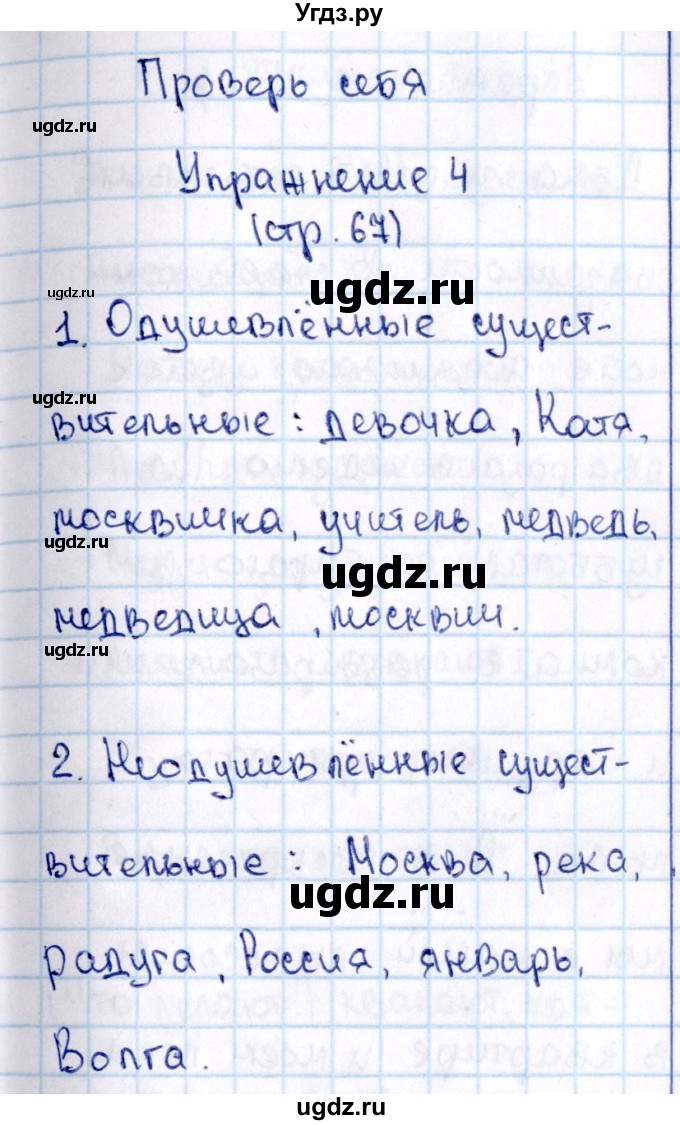 Угдз.ру
Проверь себя
ugdz.ru
Упражнение 4
(стр. 67)
ugdz.ru
ugdz.ru
1. Одушевлённые сущест-
ugdz.ru
вительные: девочка, Катя,
москвичка, учитель, медведь,
ugdz.ru
ugdz.ru
медведица, москвич.
ugdz.ru
2. Неодушевлённые сущест-
вительные: Москва, река,
ugdz.ru
радуга, Россия, январь,
Волга.
ugdz.ru